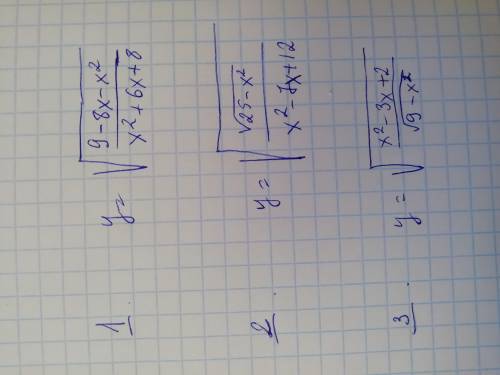 1 y = √((9 - 8x - x²)/(x² + 6x + 8))
2 y = √(√(25 - x²)/(x² - 7x + 12))
3 y = √((x² - 3x + 2)/√(9 - x²))